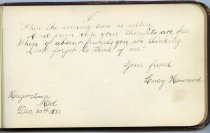 When the evening sun is setting
And from care your thoughts are free
When of absent friends you are thinking
Won't forget to think of me.
Your friend
Howard
Hagerstown
Md
Dec. 30th 1881